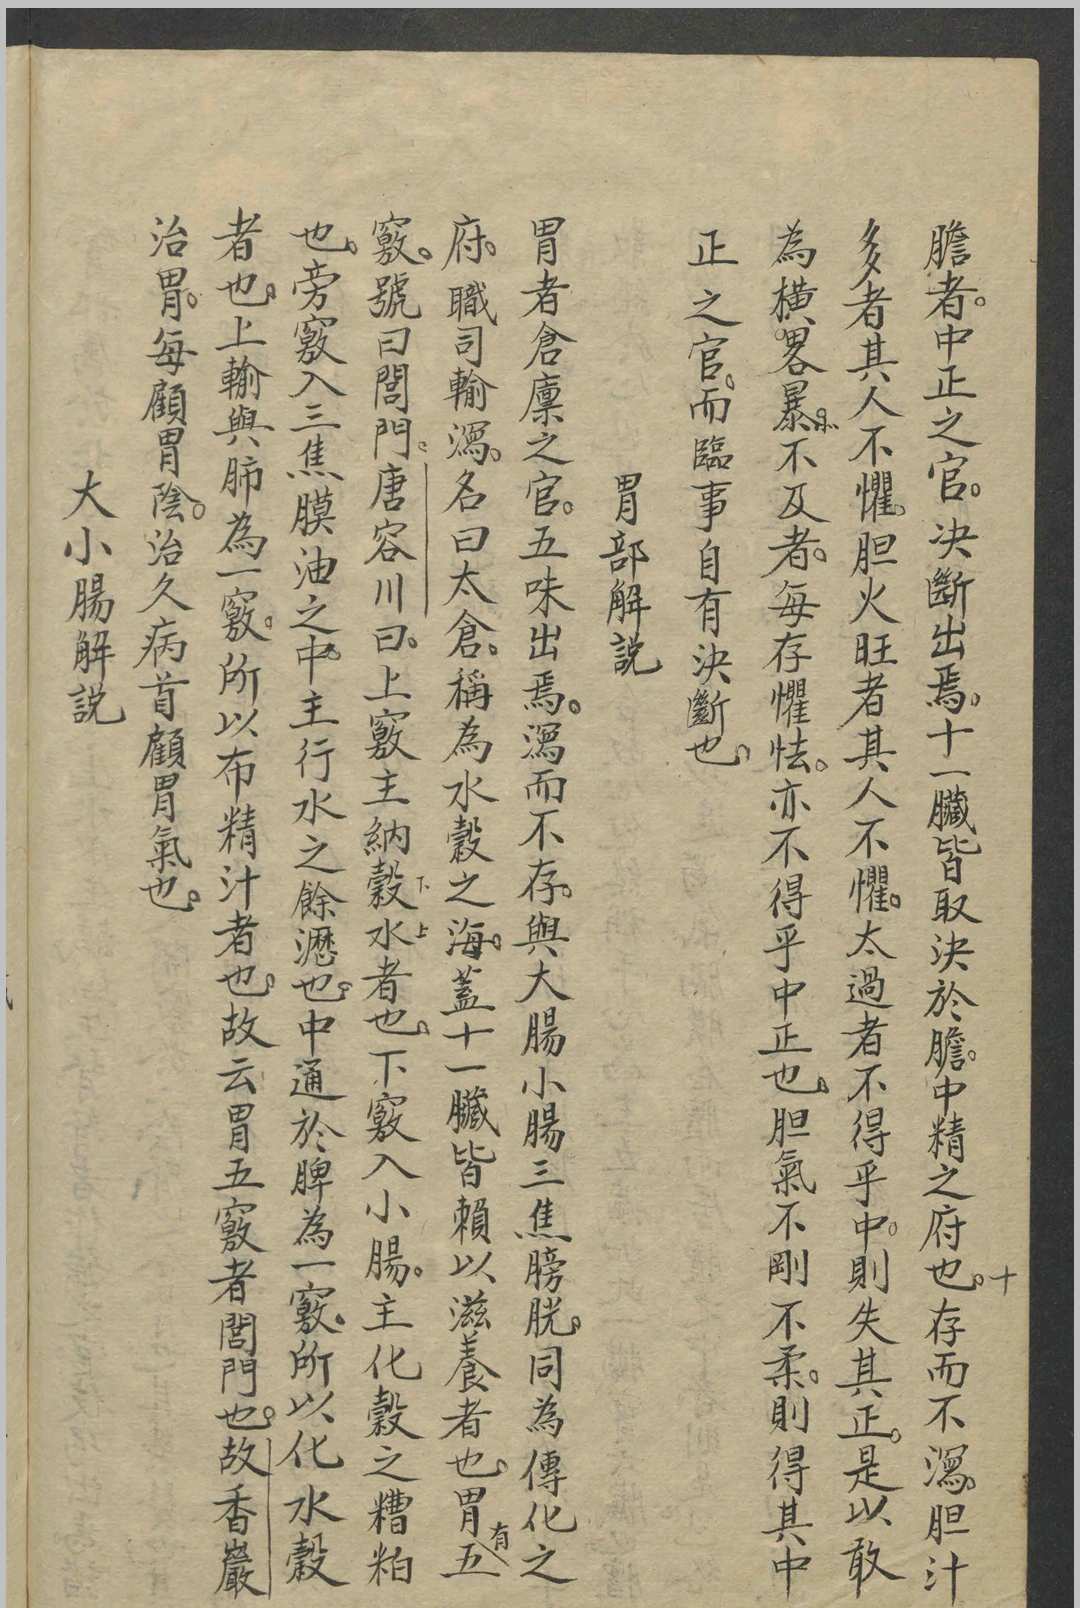 膽者。中正之官。决斷出焉。十一臟皆取決於膽。中精之府也。存而不瀉。胆汁
多者其人不懼。胆火旺者其人不懼。太過者不得乎中。則失其正。是以敢
為橫。畧暴。不及者。每存懼怯。亦不得乎中正也。胆氣不剛不柔。則得其中
正之官。而臨事自有決斷也。
胃部解説
胃者倉廩之官。五味出焉。瀉而不存。與大腸小腸三焦膀胱。同為傳化之
府。職司輸瀉。名曰太倉。稱為水穀之海。蓋十一臟皆賴以滋養者也。胃有五
竅。號曰閭門。唐容川曰。上竅主納穀下水上者也。下竅入小腸。主化穀之糟粕
也。旁竅入三焦膜油之中。主行水之餘瀝也。中通於脾為一竅。所以化水穀
者也。上輸與肺為一竅。所以布精汁者也。故云胃五竅者閭門也。故香巖
治胃。每顧胃陰。治久病首顧胃氣也。
大小腸解説
十